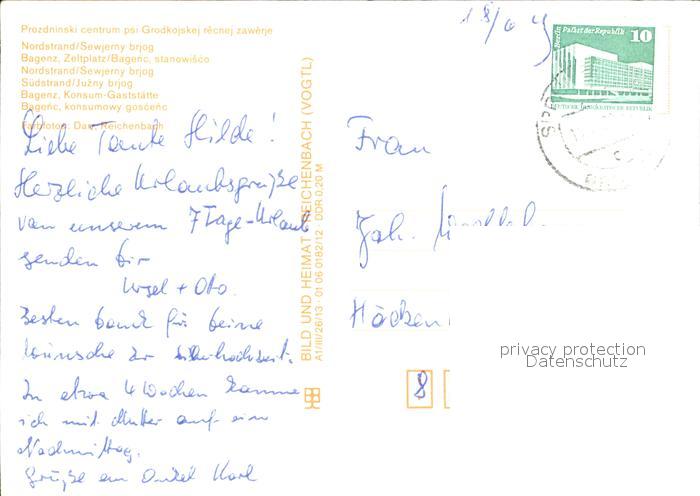 Prozdninski centrum psi Grodkojskej rěcnej zawěrje
Nordstrand/Sewjerny brjog
Bagenz, Zeltplatz/Bageńc, stanowišćo
Nordstrand/Sewjerny brjog
Südstrand/Južny brjog
Bagenz, Konsum-Gaststätte
Bageńc, konsumowy gosćeńc
Farbfotos: Darr, Reichenbach
Liebe Tante Hilde!
Herzliche Urlaubsgrüße
von unserem 7 Tage-Urlaub
senden Dir
Ursel + Otto.
Besten Dank für Deine
Wünsche zur Silberhochzeit.
In etwa 4 Wochen komme
ich mit Mutter auf ein
Nachmittag.
Grüße an Onkel Karl
BILD UND HEIMAT REICHENBACH (VOGTL)
A1/III/26/13 · 01 06 0182/12 · DDR 0,20 M
Berlin Palast der Republik
10
DEUTSCHE DEMOKRATISCHE REPUBLIK
Frau
Joh.
8
privacy protection
Datenschutz